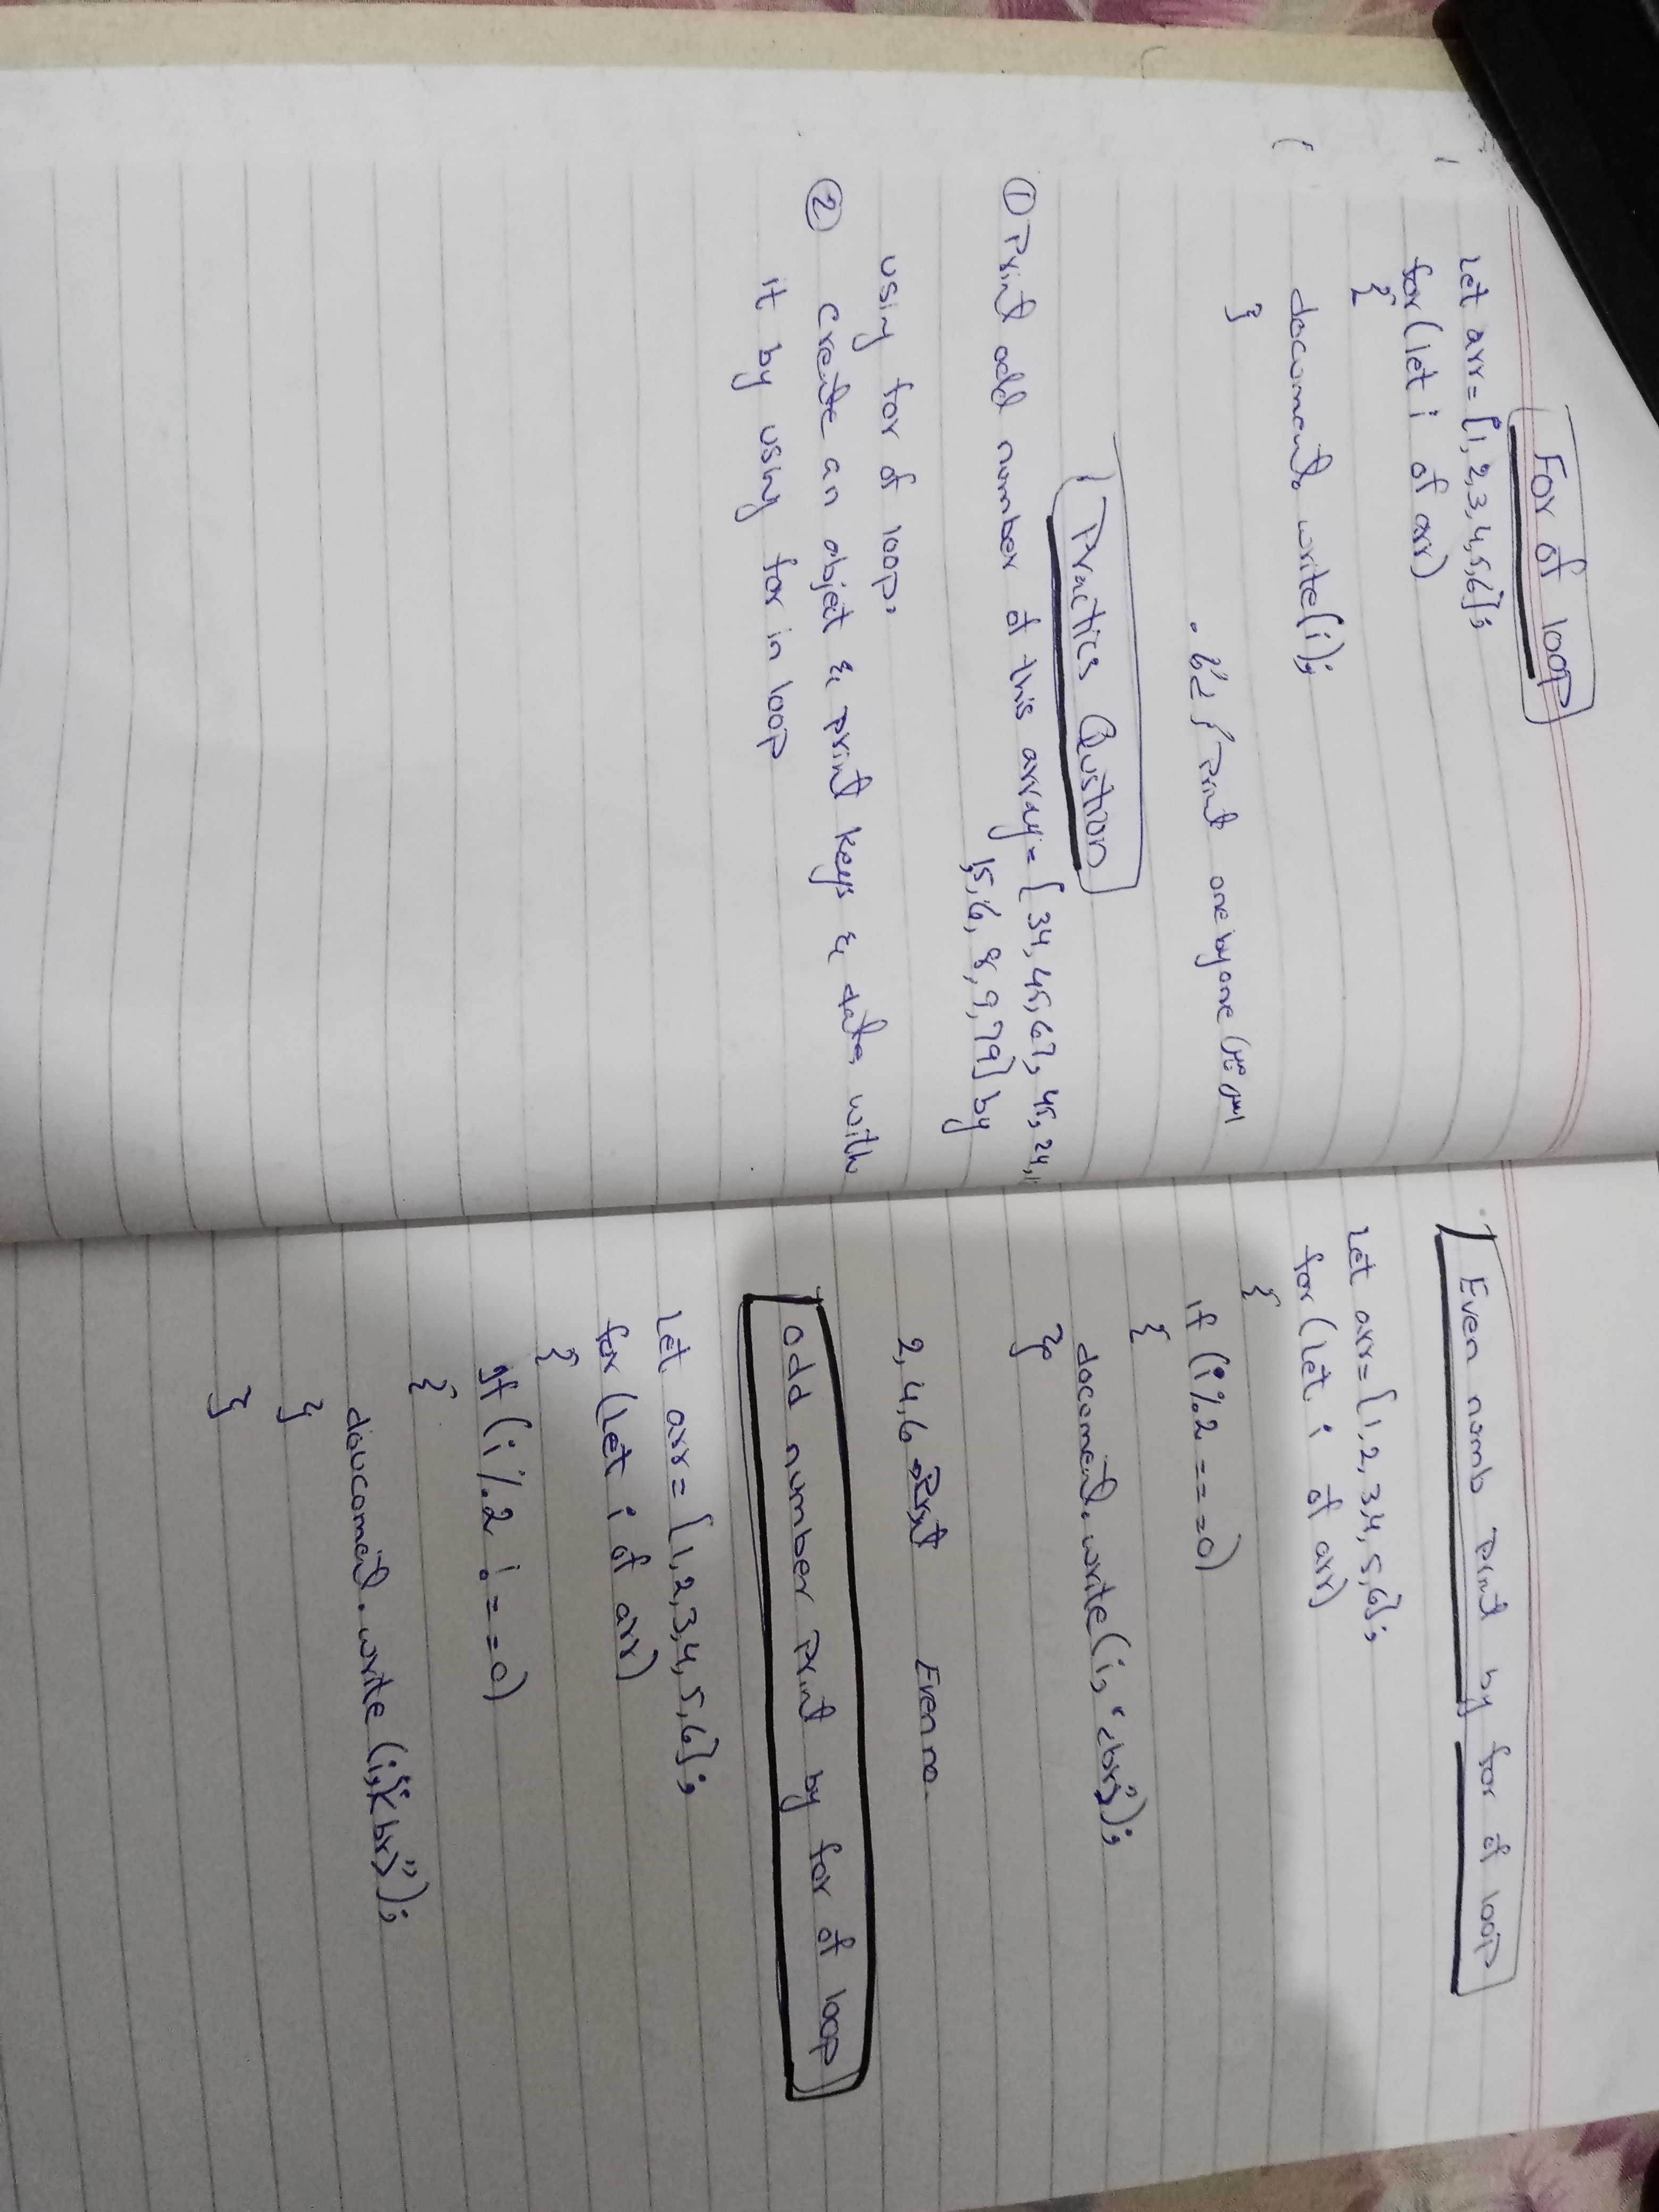 For of loop
let arr = [1, 2, 3, 4, 5, 6];
for (let i of arr)
{
document. write(i);
}
print one by one
Practics Qustion
① Print odd number of this array = [34, 45, 67, 45, 24,
15, 6, 8, 9, 79] by
using for of loop.
② create an object & print keys & data with
it by using for in loop
Even numb print by for of loop
let arr = [1, 2, 3, 4, 5, 6];
for (let i of arr)
{
if (i % 2 === 0)
{
document. write(i, '<br>');
}
2, 4, 6 Print Even no.
odd number print by for of loop
let arr = [1, 2, 3, 4, 5, 6];
for (let i of arr)
{
if (i % 2 !== 0)
{
doucoment. write (i, "<br>");
}
}